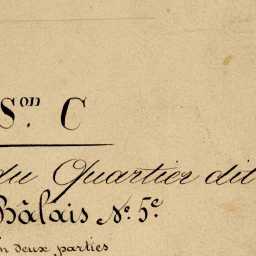 Son C
du Quartier dit
Bâlais No. 5e.
en deux parties